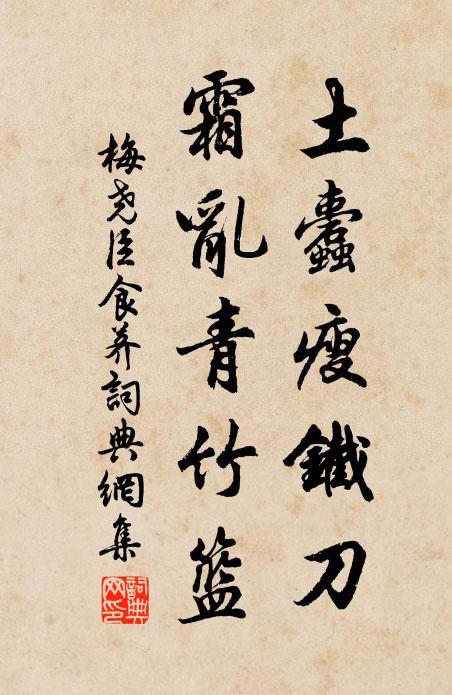 土蠹瘦鐵刀
霜亂青竹籃
梅尧臣食荠詞典網集
詞典
网印